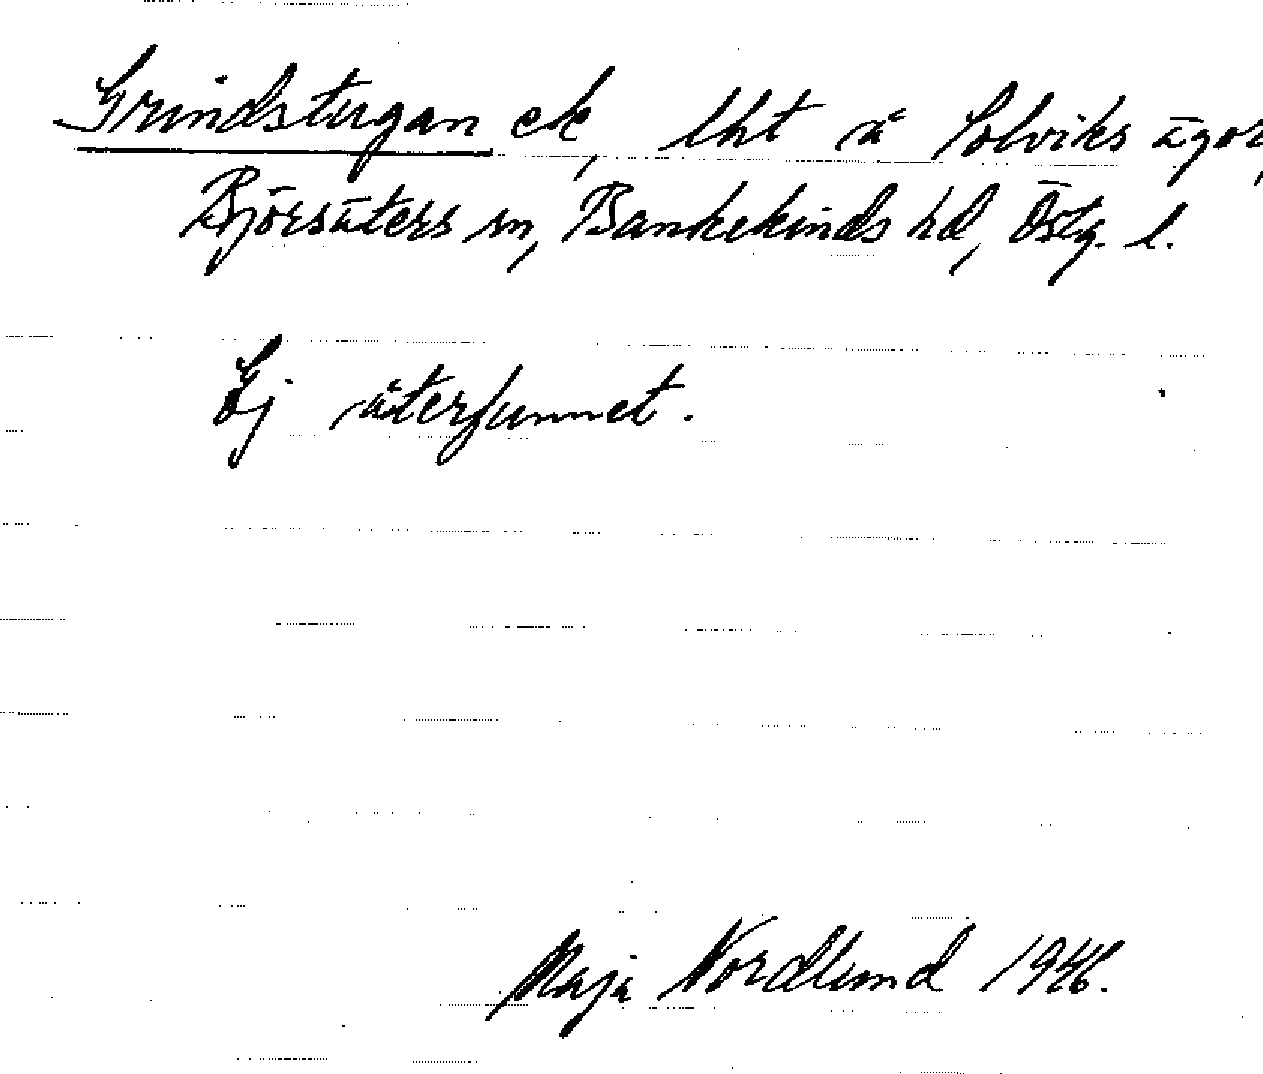 Grindstugan ek, lht å Solviks ägor,
Björsäters sn, Bankekinds hd, Östg. l.
Ej återfunnet.
Maja Nordlund 1946.